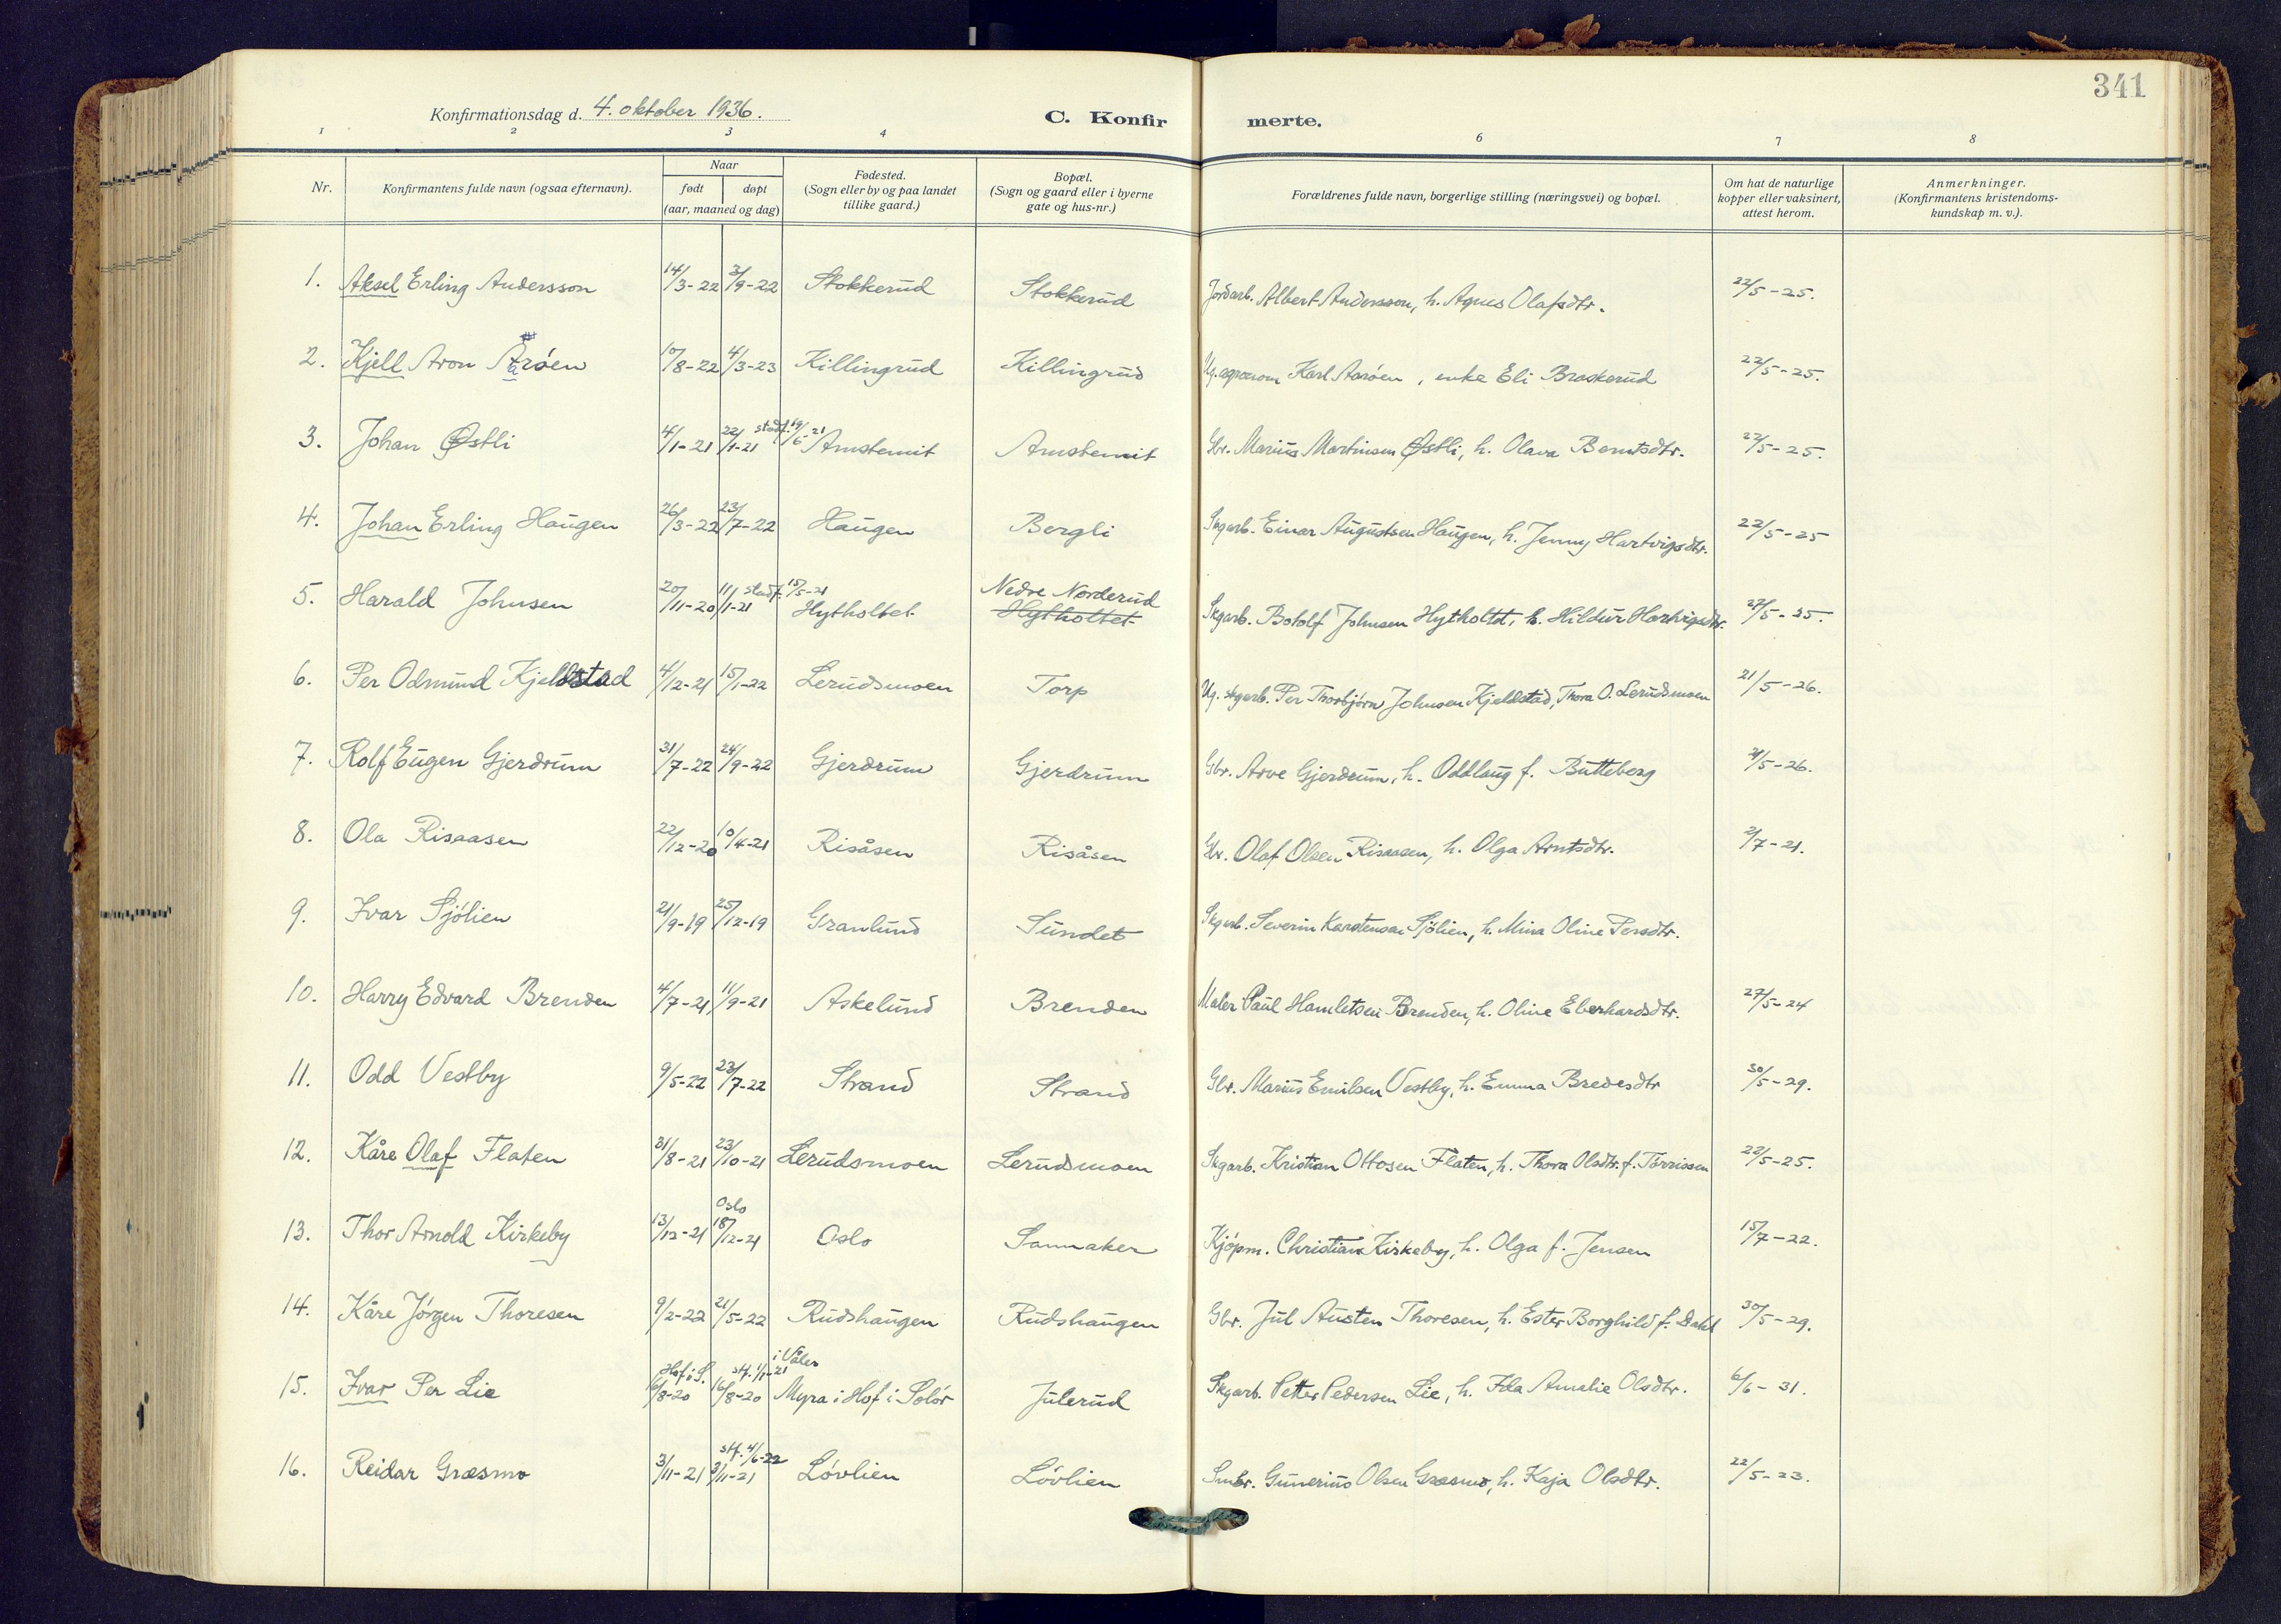 341
Konfirmationsdag d. 4. oktober 1936. C. Konfir merte.
1 2 3 4 6 7 8
Nr. Konfirmantens fulde navn (ogsaa efternavn). Naar født døpt (aar, maaned og dag) Fødested. (Sogn eller by og paa landet tillike gaard.) Bopæl. (Sogn og gaard eller i byerne gate og hus-nr.) Forældrenes fulde navn, borgerlige stilling (næringsvei) og bopæl. Om hat de naturlige kopper eller vaksinert, attest herom. Anmerkninger. (Konfirmantens kristendoms-kundskap m. v.).
1. Aksel Erling Andersson 14/3-22 3/9-22 Stokkerud Stokkerud Jordarb. Albert Andersson, h. Agnes Olafsdtr. 22/5-25.
2. Kjell Aron Aarøen 10/8-22 4/3-23 Killingrud Killingrud Ug. agronom Karl Aarøen, enke Eli Braskerud 22/5-25.
3. Johan Østli 4/1-21 22/1-21 stadf. 19/6-21 Arnstemit Arnstemit Gbr. Marius Martinsen Østli, h. Olava Berntsdtr. 22/5-25.
4. Johan Erling Haugen 26/3-22 23/7-22 Haugen Bergli Skgarb. Einar Augustsen Haugen, h. Jenny Hartvigsdtr. 22/5-25
5. Harald Johnsen 20/11-20 11/1-21 stadf. 15/5-21 Hytholtet Nedre Norderud Hytholtet Skgarb. Botolf Johnsen Hytholtet, h. Hildur Hartvigsdtr. 27/5-35.
6. Per Odmund Kjeldstad 4/12-21 15/1-22 Lerudsmoen Torp Ug. skgarb. Per Thorbjørn Johnsen Kjeldstad, Thora O. Lerudsmoen 21/5-26.
7. Rolf Eugen Gjerdrum 31/7-22 24/9-22 Gjerdrum Gjerdrum Gbr. Arve Gjerdrum, h. Oddlaug f. Butteberg 21/5-26.
8. Ola Risaasen 22/12-20 10/4-21 Risåsen Risåsen Gbr. Olaf Olsen Risaasen, h. Olga Arntsdtr. 2/7-21.
9. Ivar Sjölien 21/9-19 25/12-19 Granlund Sundet Skgarb. Severin Karstensen Sjölien, h. Mina Oline Persdtr.
10. Harry Edvard Brenden 4/7-21 11/9-21 Askelund Brenden Maler Paul Hamletsen Brenden, h. Oline Eberhardsdtr. 27/5-24
11. Odd Vestby 9/5-22 23/7-22 Strand Strand Gbr. Marius Emilsen Vestby, h. Emma Bredesdtr 30/5-29.
12. Kåre Olaf Flaten 31/8-21 23/10-21 Lerudsmoen Lerudsmoen Skgarb. Kristian Ottosen Flaten, h. Thora Olsdtr. f. Tørrissen 22/5-25.
13. Thor Arnold Kirkeby 13/12-21 Oslo 18/12-21 Oslo Sannaker Kjöpm. Christian Kirkeby, h. Olga f. Jensen 15/7-22.
14. Kåre Jörgen Thoresen 9/2-22 21/5-22 Rudshaugen Rudshaugen Gbr. Jul Austen Thoresen, h. Ester Borghild f. Dahl 30/5-29.
15. Ivar Per Lie Hof i S. 6/8-20 16/8-20 stf. 1/1-21 i Våler Myra i Hof i Solör Julerud Skgarb. Petter Pedersen Lie, h. Ida Amelie Olsdtr. 6/6-31.
16. Reidar Græsmo 3/11-21 3/11-21 stf. 4/6-22 Lövlien Lövlien Smbr. Gunerius Olsen Græsmo, h. Kaja Olsdtr. 22/5-23.